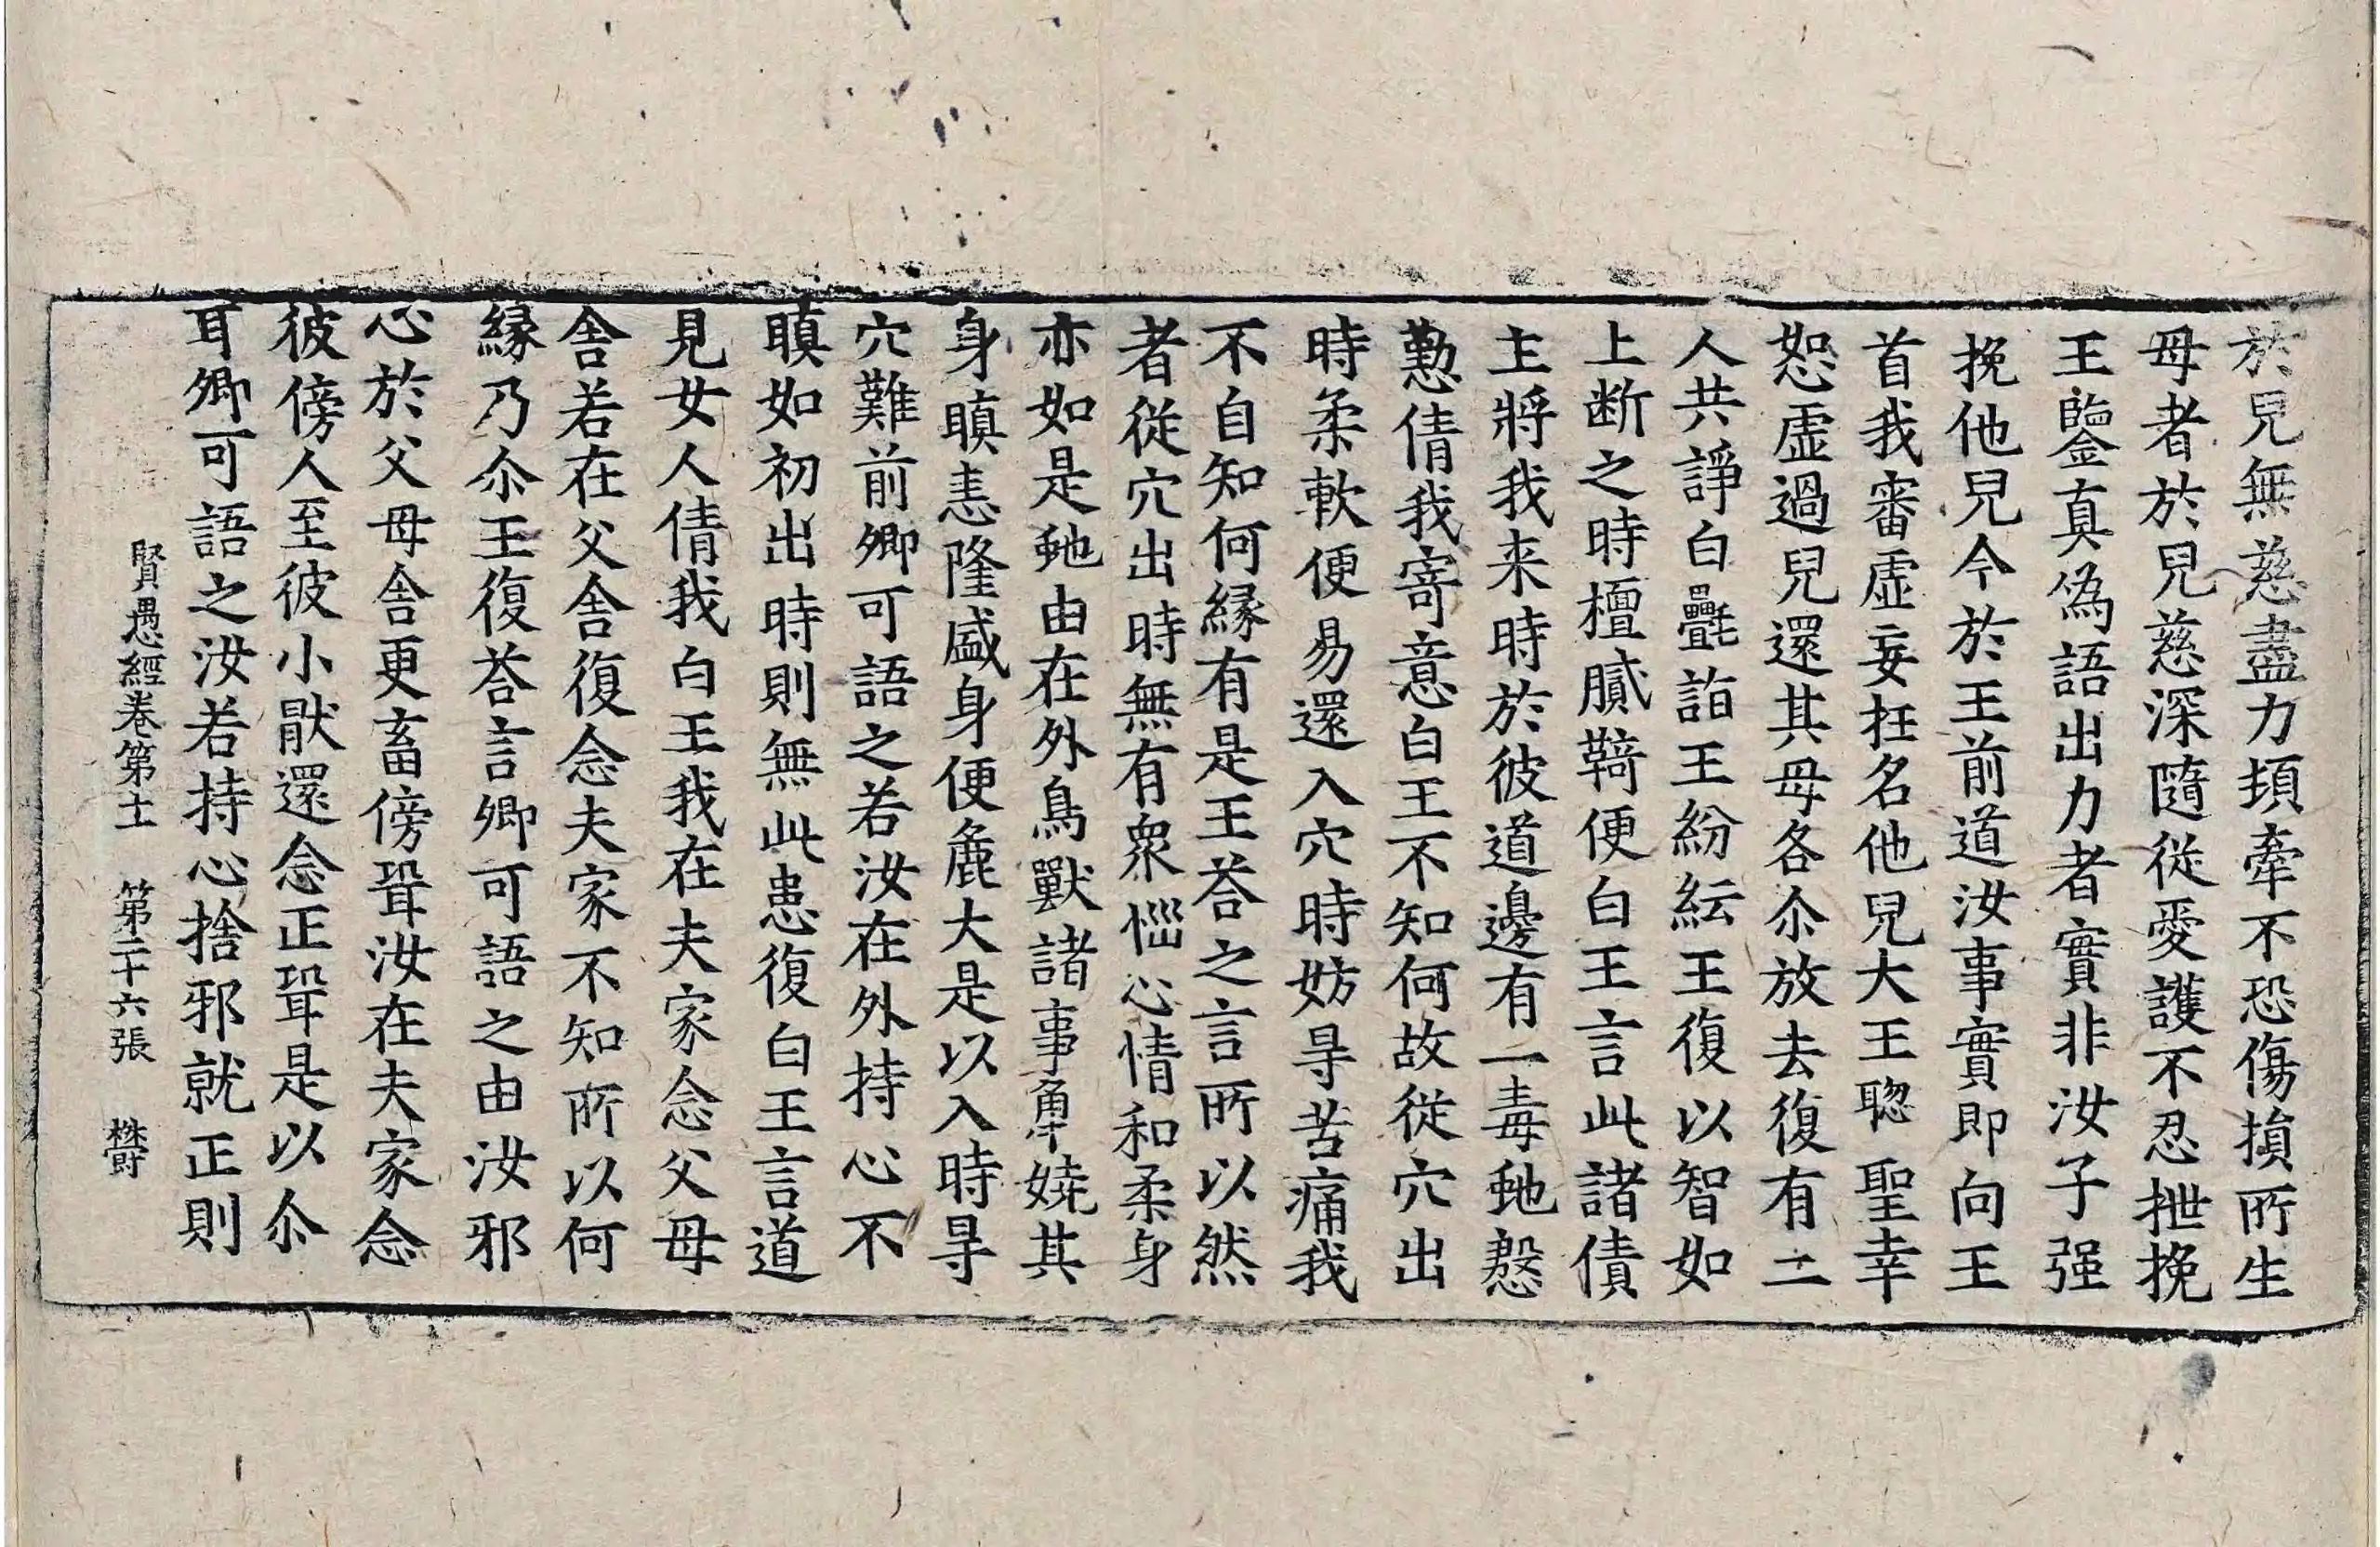 於兒無慈盡力頓牽不恐傷損所生
母者於兒慈深隨從愛護不忍抴挽
王鑒真偽語出力者實非汝子强
挽他兒今於王前道汝事實即向王
首我審虛妄抂名他兒大王聦聖幸
恕虛過兒還其母各尒放去復有二
人共諍白㲲詣王紛紜王復以智如
上断之時檀膩䩭便白王言此諸債
主將我来時於彼道邊有一毒虵慇
懃倩我寄意白王不知何故從穴出
時柔軟便易還入穴時妨㝵苦痛我
不自知何緣有是王荅之言所以然
者從穴出時無有衆惱心情和柔身
亦如是虵由在外鳥獸諸事觸嬈其
身瞋恚隆盛身便麁大是以入時㝵
穴難前卿可語之若汝在外持心不
瞋如初出時則無此患復白王言道
見女人倩我白王我在夫家念父母
舍若在父舍復念夫家不知所以何
緣乃尒王復荅言卿可語之由汝邪
心於父母舍更畜傍聟汝在夫家念
彼傍人至彼小猒還念正聟是以尒
耳卿可語之汝若持心捨邪就正則
賢愚經卷第十一 第二十六張 欝